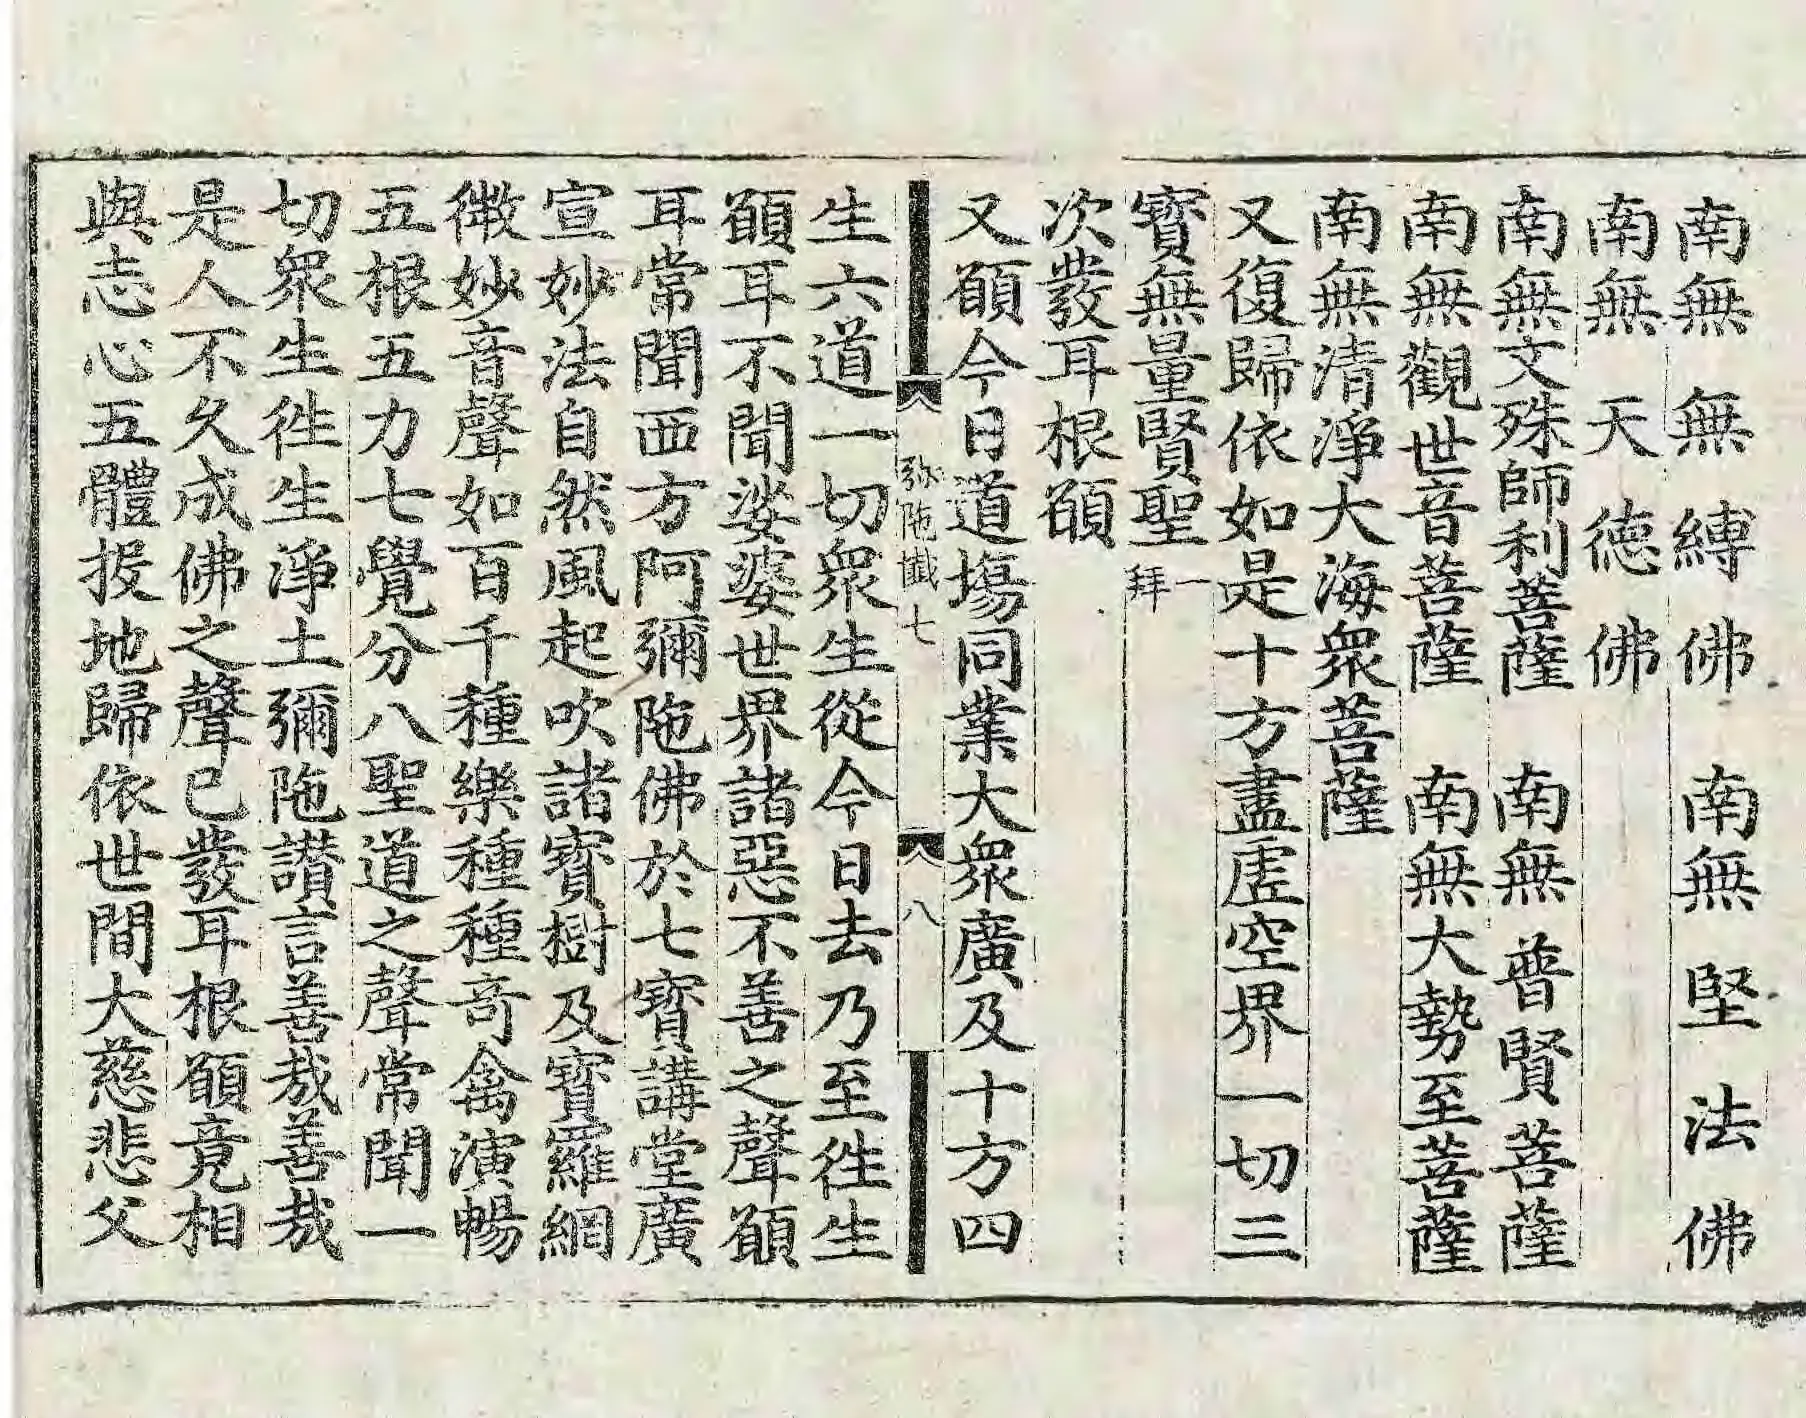 南無無縛佛　南無堅法佛
南無天德佛
南無文殊師利菩薩　南無普賢菩薩
南無觀世音菩薩　南無大勢至菩薩
南無清淨大海衆菩薩
又復歸依如是十方盡虛空界一切三
寶無量賢聖一拜
次發耳根願
又願今日道場同業大衆廣及十方四
弥陁懺七　八
生六道一切衆生從今日去乃至徃生
願耳不聞娑婆世界諸惡不善之聲願
耳常聞西方阿彌陁佛於七寶講堂廣
宣妙法自然風起吹諸寶樹及寶羅網
微妙音聲如百千種樂種種奇禽演暢
五根五力七覺分八聖道之聲常聞一
切衆生徃生淨土彌陁讃言善哉善哉
是人不久成佛之聲已發耳根願竟相
與志心五體投地歸依世間大慈悲父